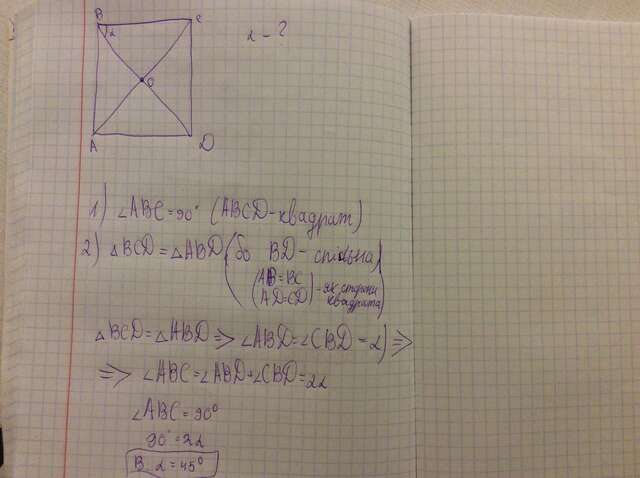 B
C
α
α - ?
O
A
D
1) ∠ABC = 90° (ABCD - квадрат)
2) △BCD = △ABD (бо BD - спільна)
(AB = BC
AD = CD) - як сторони квадрата
△BCD = △ABD ⇒ ∠ABD = ∠CBD = α) ⇒
⇒ ∠ABC = ∠ABD + ∠CBD = 2α
∠ABC = 90°
90° = 2α
В. α = 45°